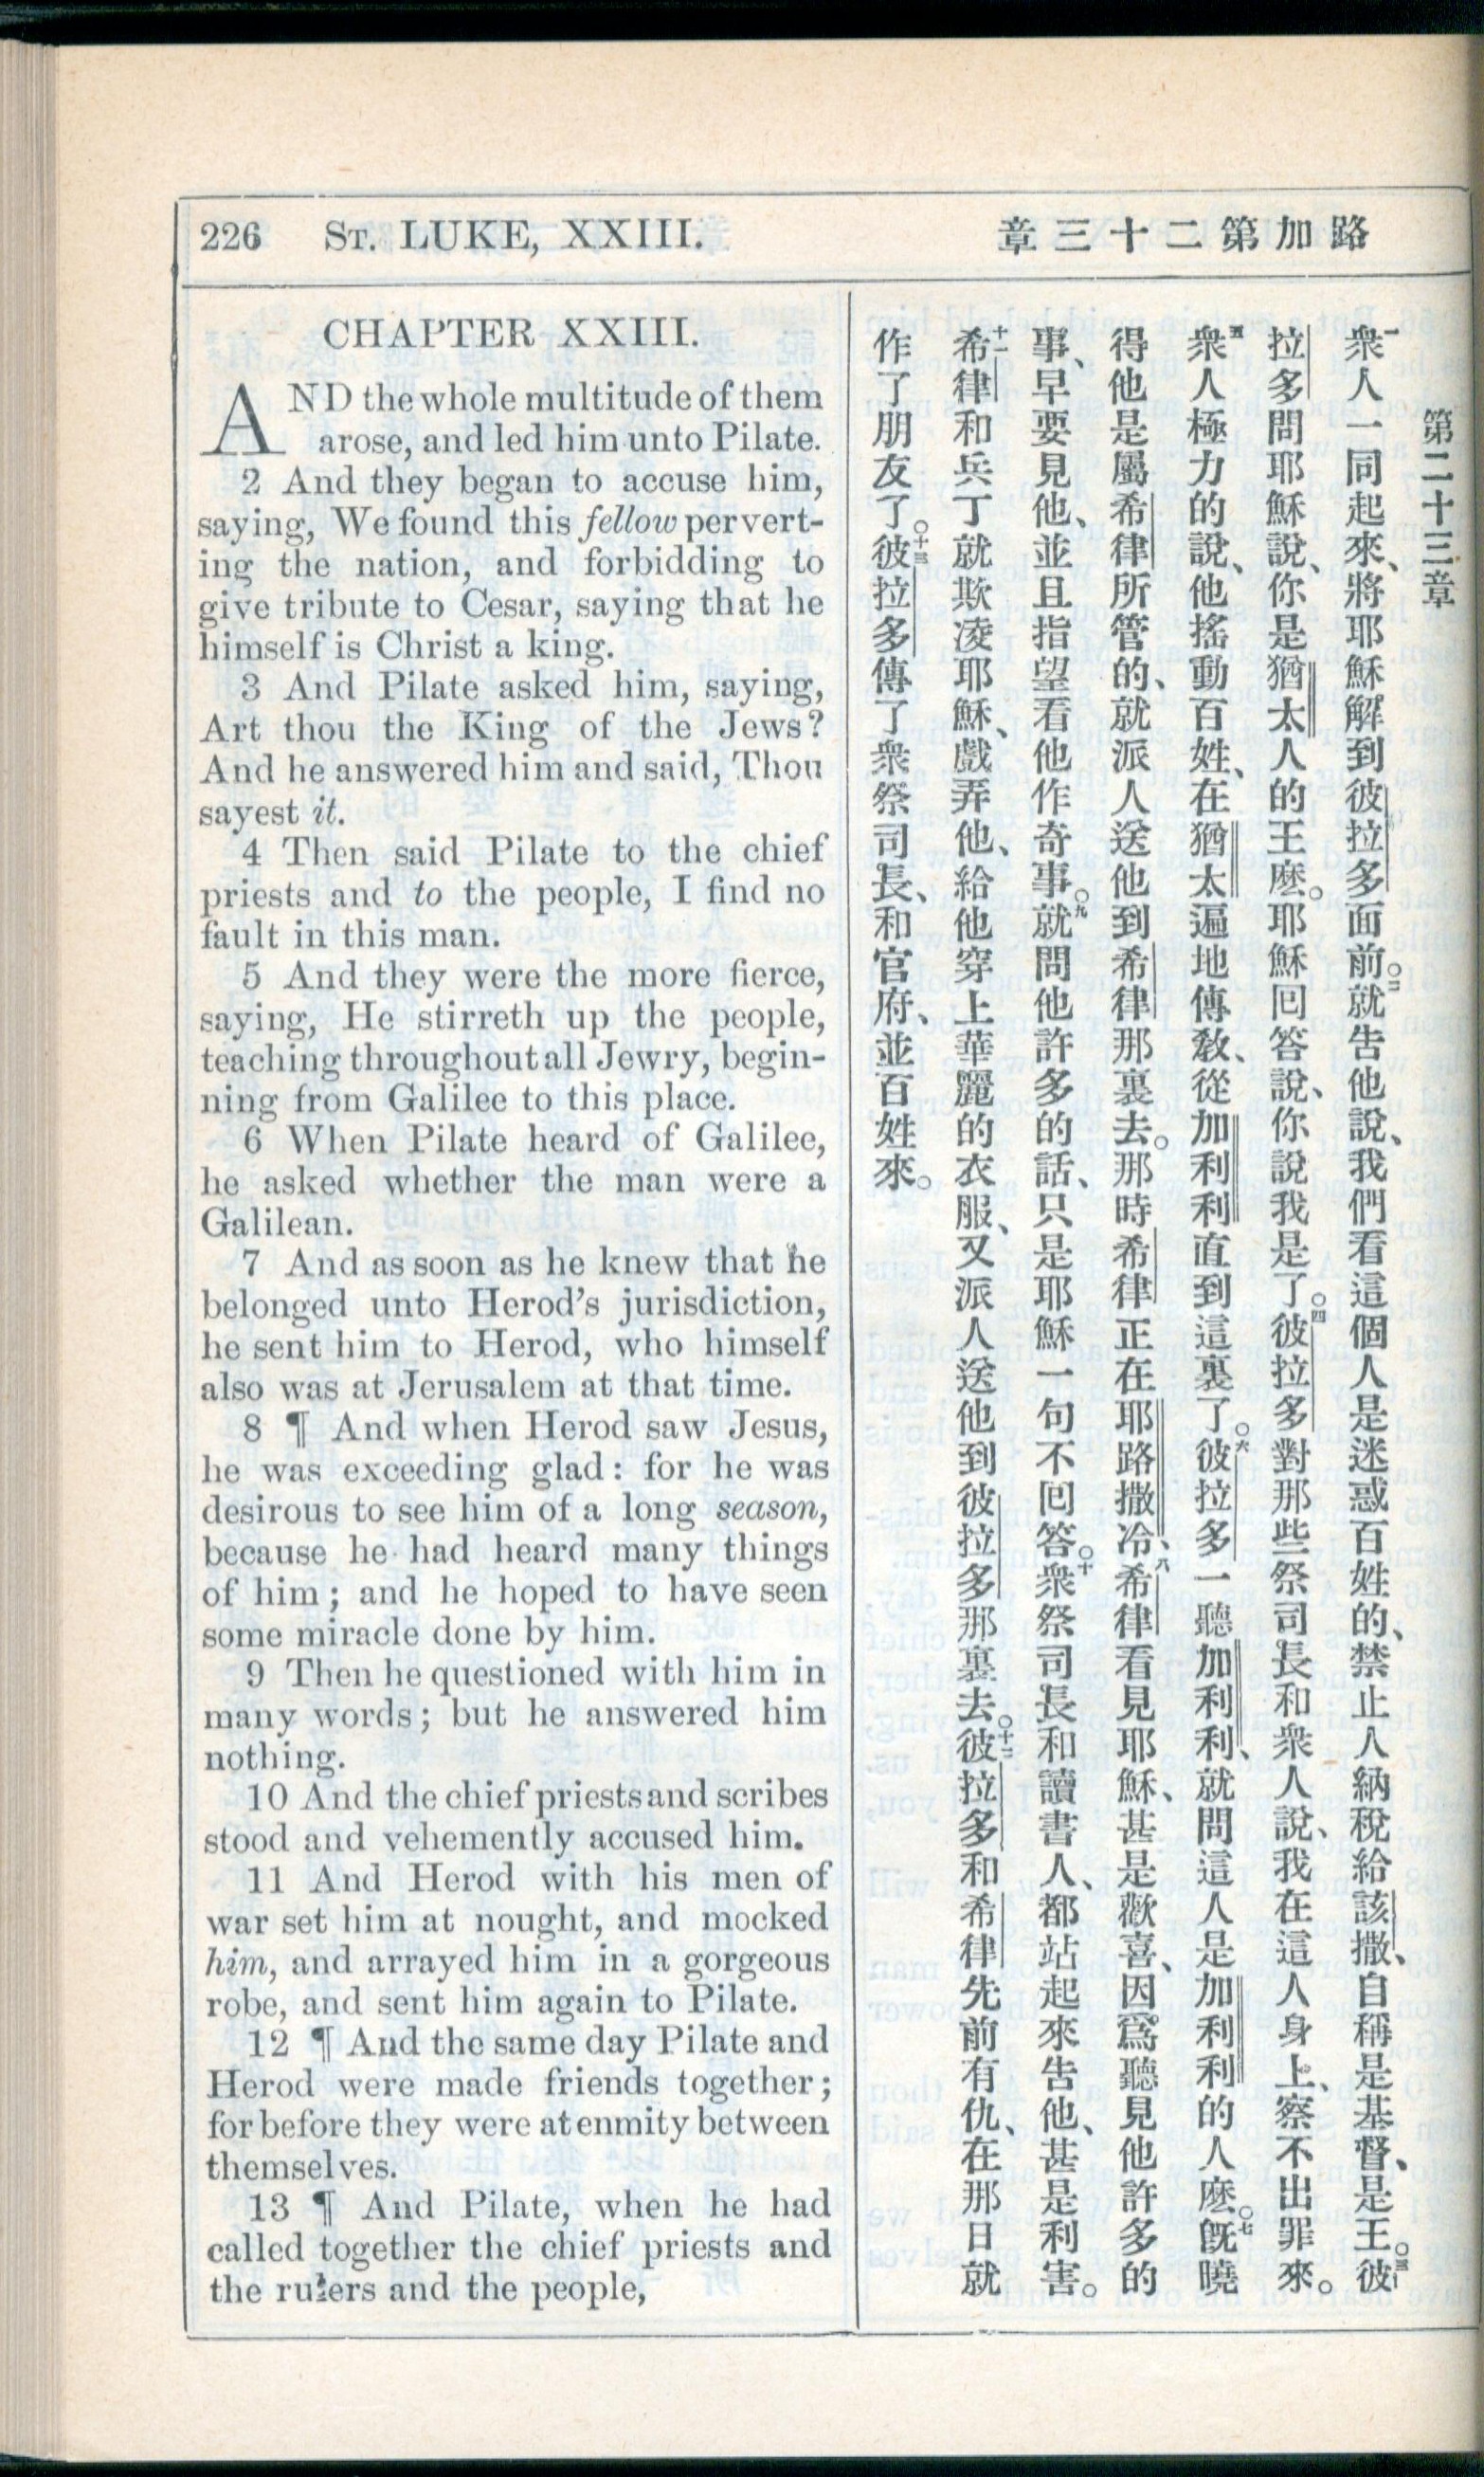 226 ST. LUKE, XXIII.
章三十二第加路
CHAPTER XXIII.
AND the whole multitude of them
arose, and led him unto Pilate.
2 And they began to accuse him,
saying, We found this fellow pervert-
ing the nation, and forbidding to
give tribute to Cesar, saying that he
himself is Christ a king.
3 And Pilate asked him, saying,
Art thou the King of the Jews?
And he answered him and said, Thou
sayest it.
4 Then said Pilate to the chief
priests and to the people, I find no
fault in this man.
5 And they were the more fierce,
saying, He stirreth up the people,
teaching throughout all Jewry, begin-
ning from Galilee to this place.
6 When Pilate heard of Galilee,
he asked whether the man were a
Galilean.
7 And as soon as he knew that he
belonged unto Herod's jurisdiction,
he sent him to Herod, who himself
also was at Jerusalem at that time.
8 ¶ And when Herod saw Jesus,
he was exceeding glad: for he was
desirous to see him of a long season,
because he had heard many things
of him; and he hoped to have seen
some miracle done by him.
9 Then he questioned with him in
many words; but he answered him
nothing.
10 And the chief priests and scribes
stood and vehemently accused him.
11 And Herod with his men of
war set him at nought, and mocked
him, and arrayed him in a gorgeous
robe, and sent him again to Pilate.
12 ¶ And the same day Pilate and
Herod were made friends together;
for before they were at enmity between
themselves.
13 ¶ And Pilate, when he had
called together the chief priests and
the rulers and the people,
第二十三章
一衆人一同起來、將耶穌解到彼拉多面前。二就吿他說、我們看這個人是迷惑百姓的、禁止人納稅給該撒、自稱是基督、是王。三彼
拉多問耶穌說、你是猶太人的王麽。耶穌囘答說、你說我是了。四彼拉多對那些祭司長和衆人說、我在這人身上、察不出罪來。
五衆人極力的說、他搖動百姓、在猶太遍地傳敎、從加利利直到這裏了。六彼拉多一聽加利利、就問這人是加利利的人麽。七旣曉
得他是屬希律所管的、就派人送他到希律那裏去。那時希律正在耶路撒冷、八希律看見耶穌、甚是歡喜、因爲聽見他許多的
事、早要見他、並且指望看他作奇事。九就問他許多的話、只是耶穌一句不囘答。十衆祭司長和讀書人、都站起來吿他、甚是利害。
十一希律和兵丁就欺凌耶穌、戲弄他、給他穿上華麗的衣服、又派人送他到彼拉多那裏去。十二彼拉多和希律先前有仇、在那日就
作了朋友了。十三彼拉多傳了衆祭司長、和官府、並百姓來。